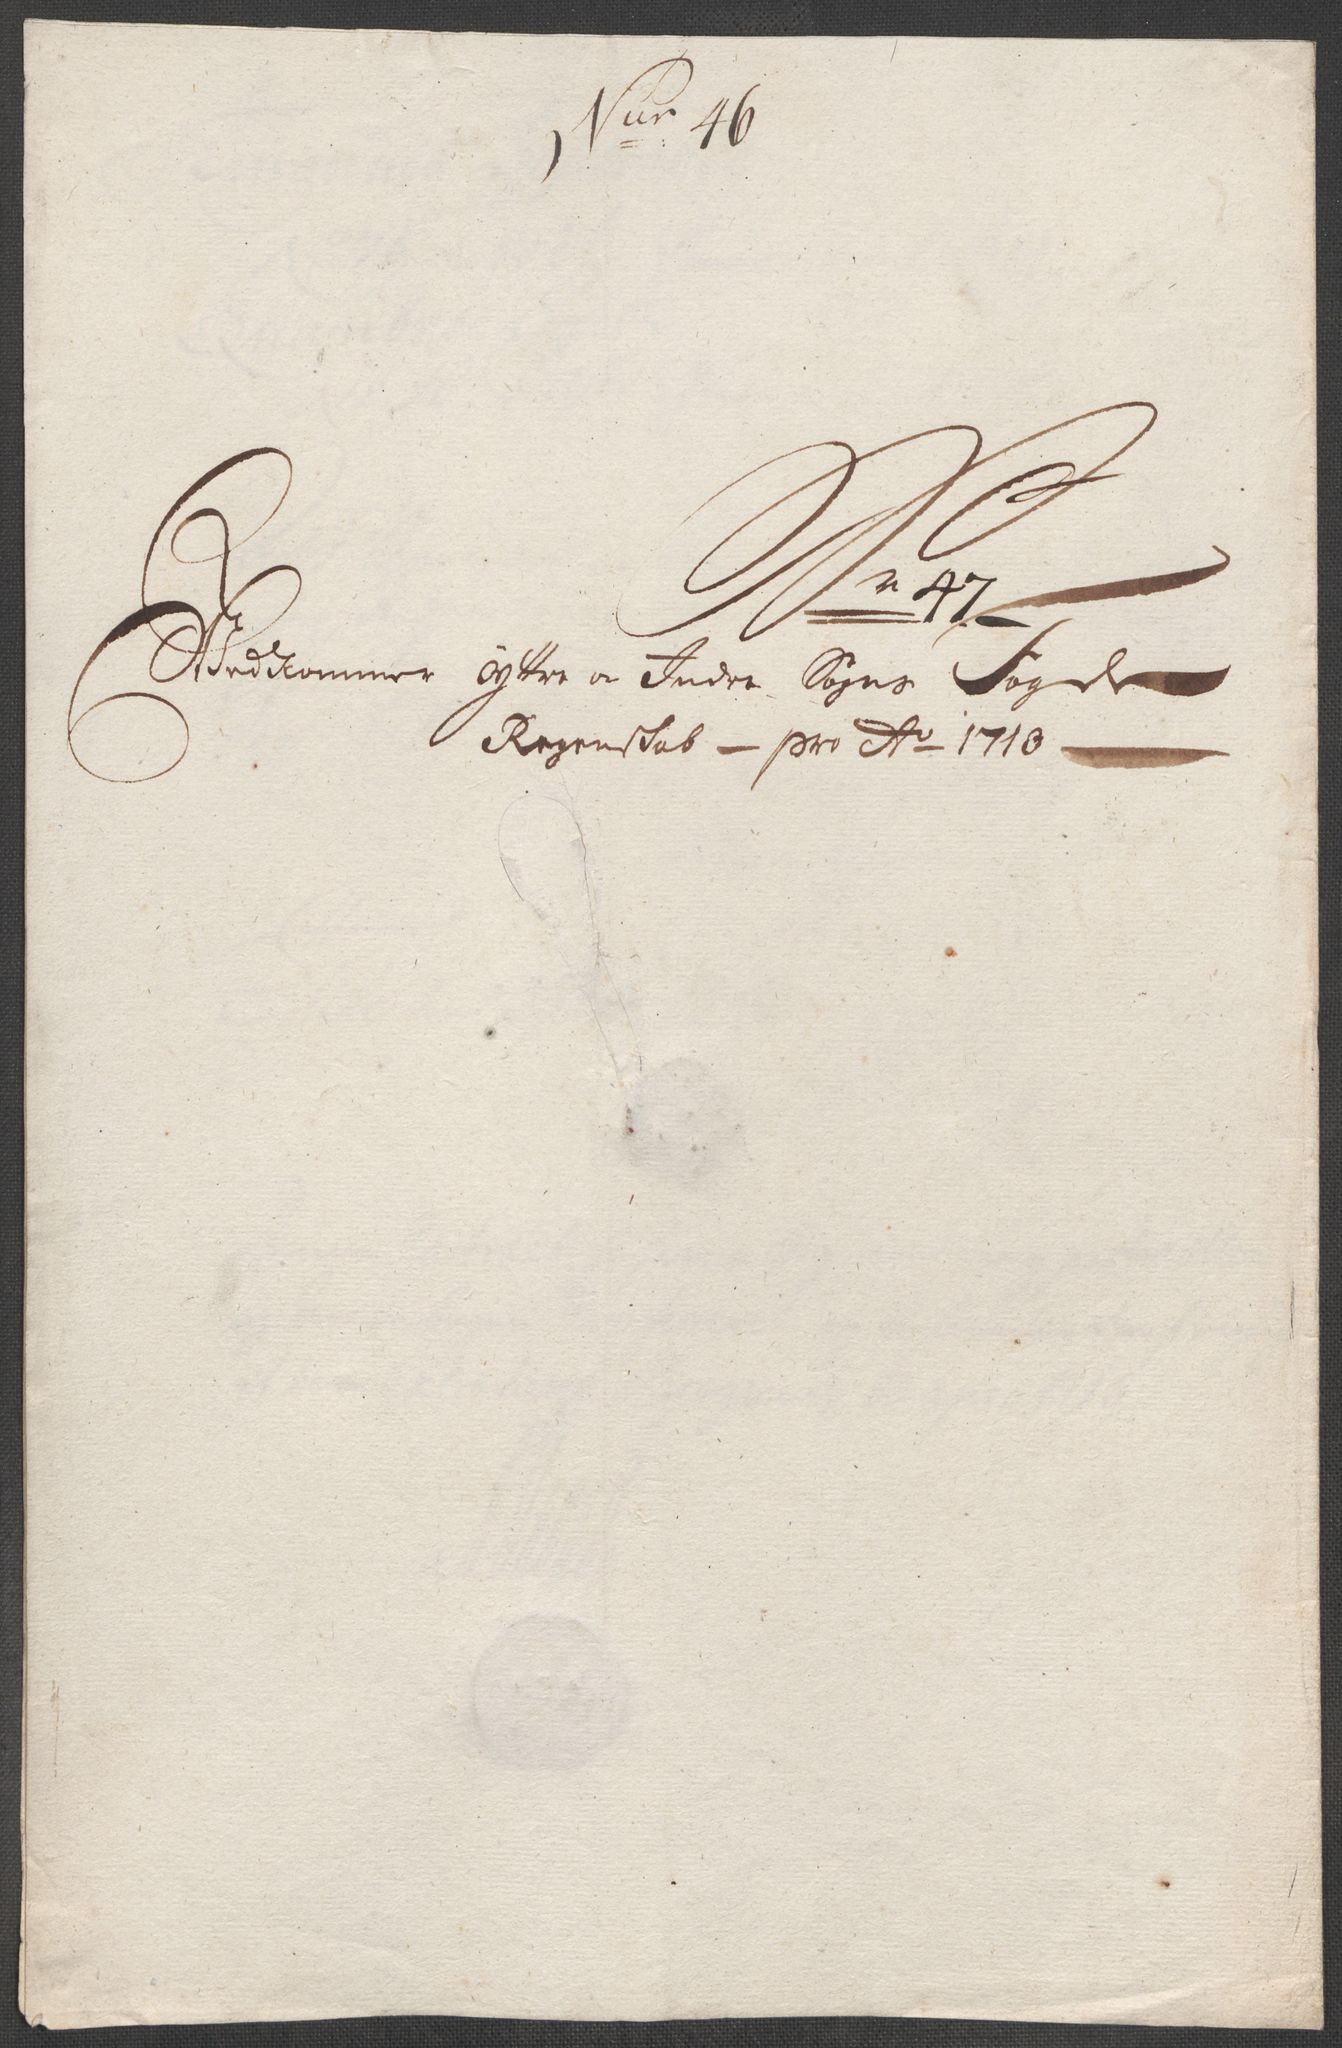 Nur 46
Nr 47
Vedkommer Yttre oc Indre Sogns Fogde
Regenskab – pro Ao 1713